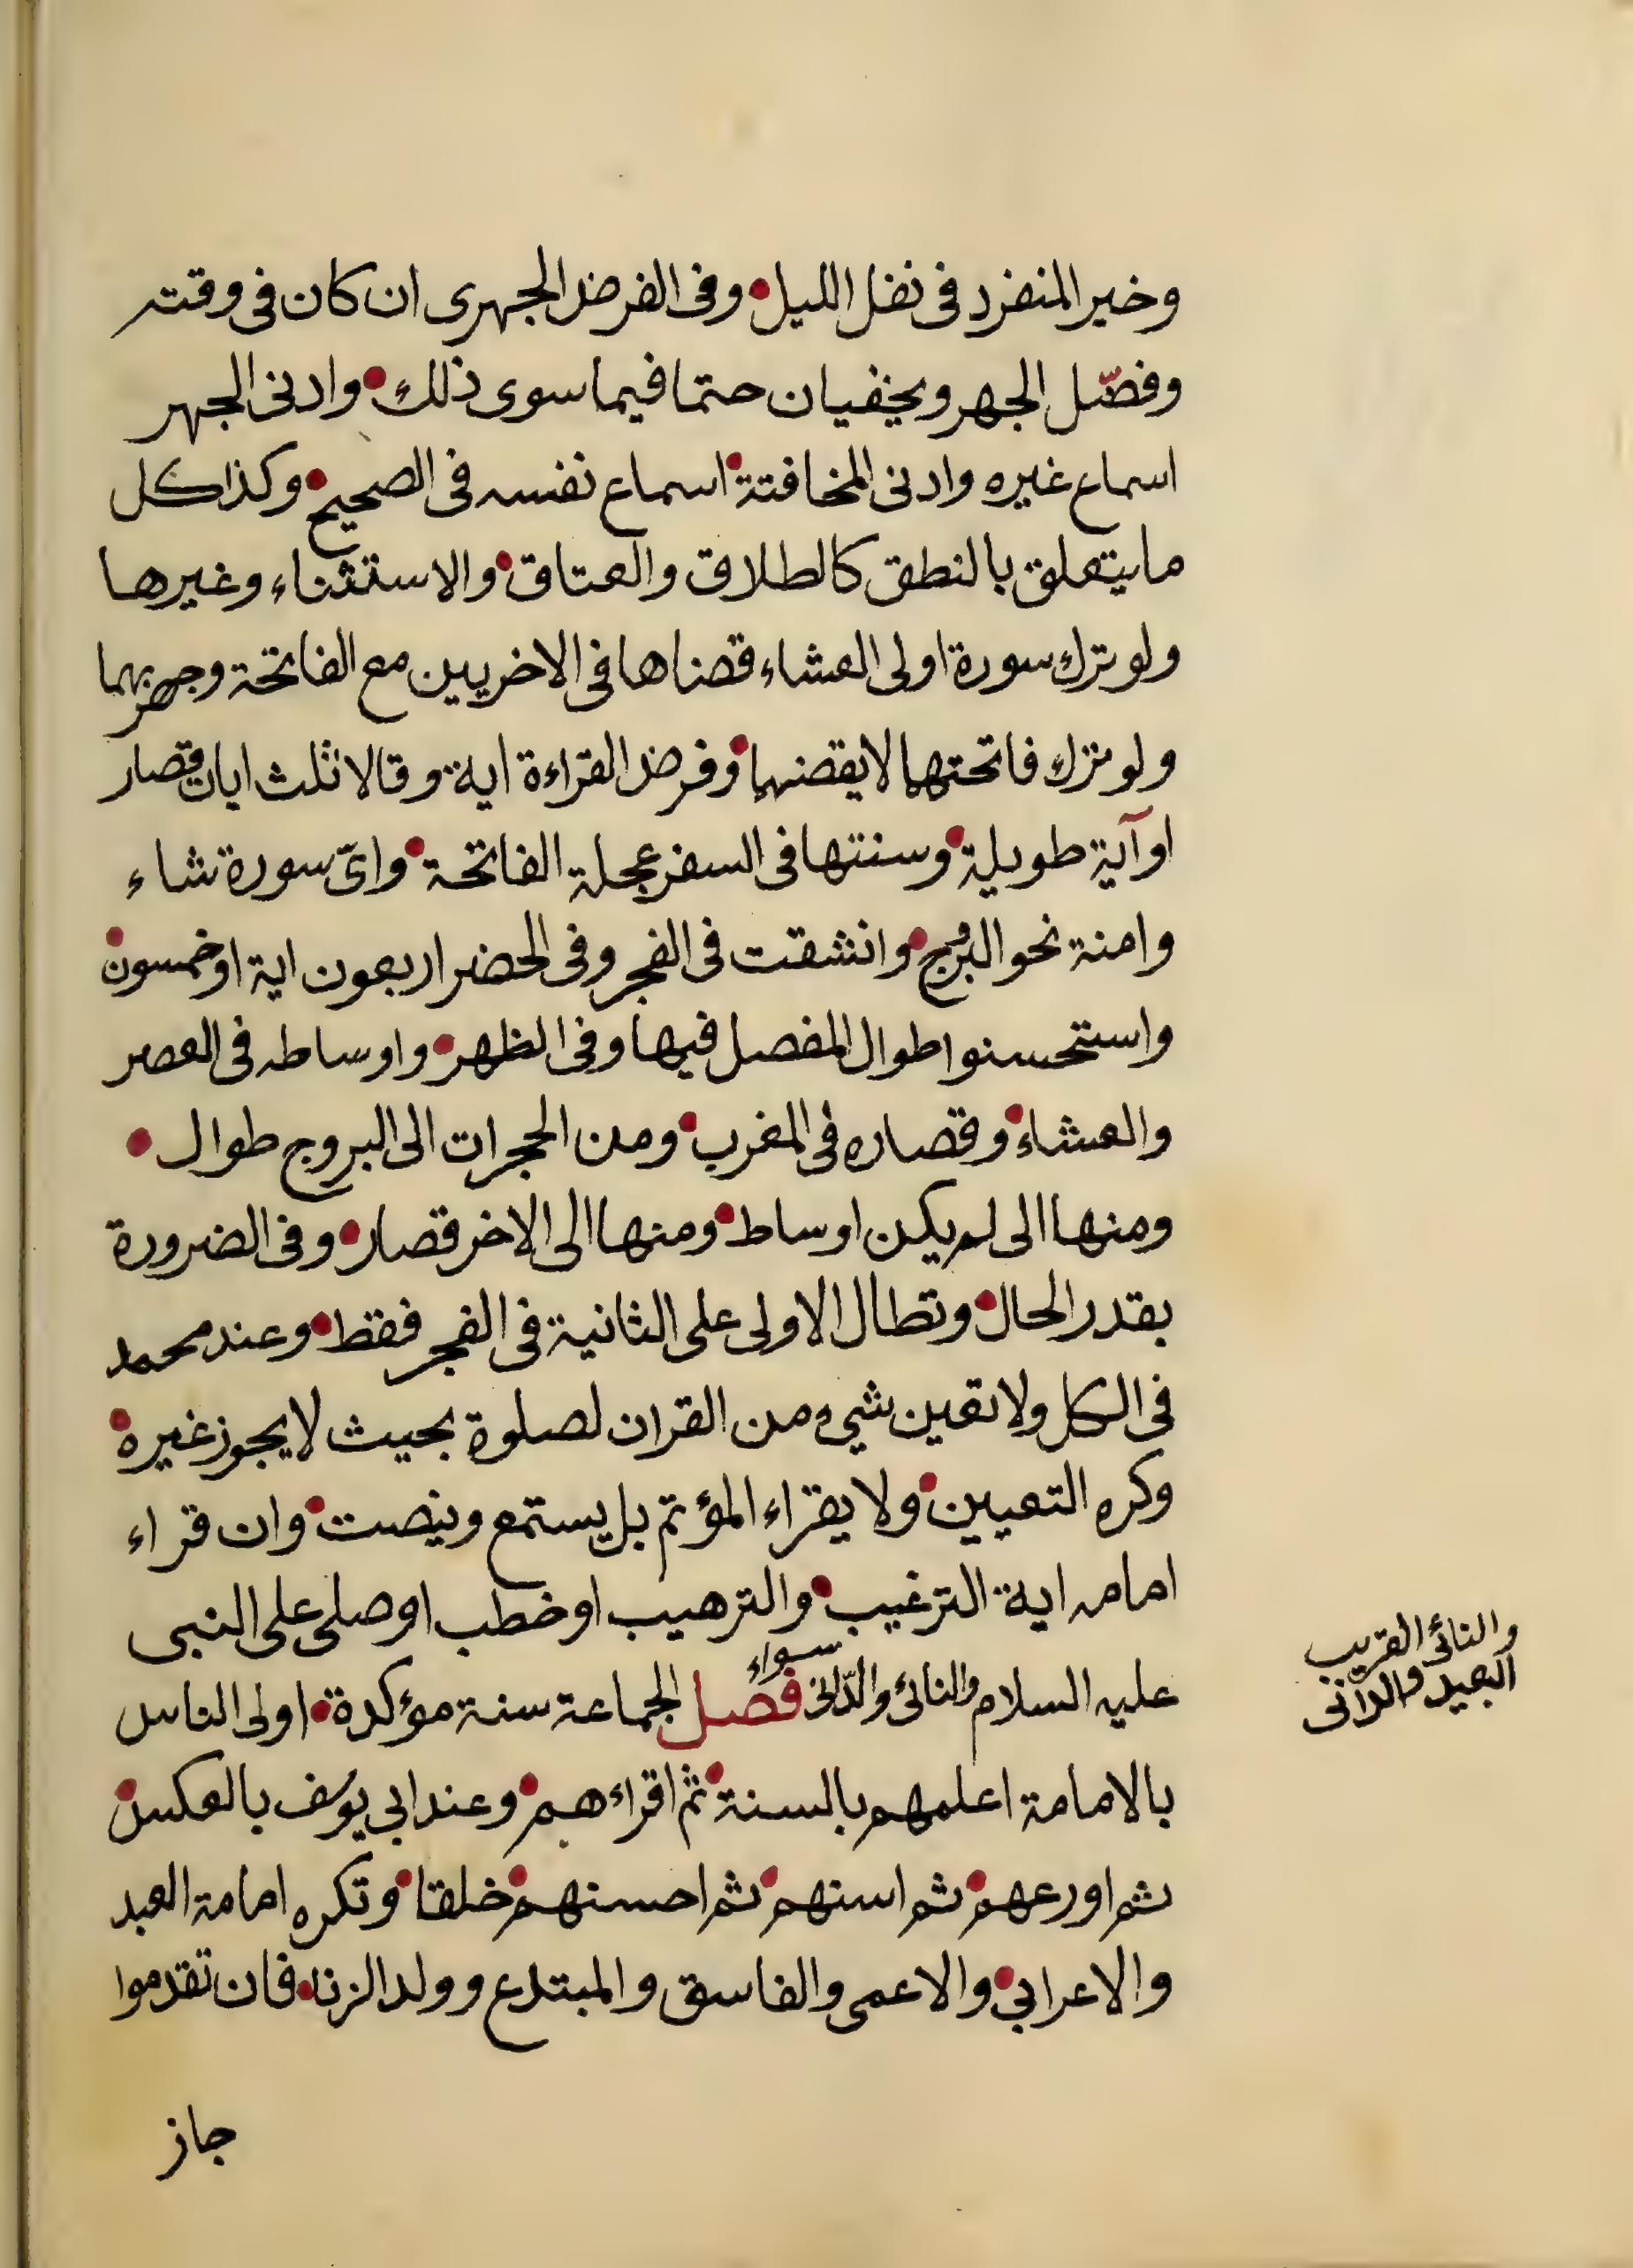 وخير المنفرد فى نفل الليل وفى الفرض الجهرى ان كان فى وقته
وفضّل الجهر ويخفيان حتما فيما سوى ذلك وادنى الجهر
اسماع غيره وادنى المخافتة اسماع نفسه فى الصحيح وكذا كل
ما يتعلق بالنطق كالطلاق والعتاق والاستثناء وغيرها
ولو ترك سورة اولى العشاء قضاها فى الاخريين مع الفاتحة وجهر بهما
ولو ترك فاتحتهما لا يقضيهما وفرض القراءة اية وقالا ثلث ايات قصار
او آية طويلة وسنتها فى السفر عجلة الفاتحة واىّ سورة شاء
وامنة نحو البروج وانشقت فى الفجر وفى الحضر اربعون اية او خمسون
واستحسنوا طوال المفصل فيها وفى الظهر واوساطه فى العصر
والعشاء وقصاره فى المغرب ومن الحجرات الى البروج طوال
ومنها الى لم يكن اوساط ومنها الى الاخر قصار وفى الضرورة
بقدر الحال وتطال الاولى على الثانية فى الفجر فقط وعند محمد
فى الكل ولا تعين شىء من القران لصلوة بحيث لا يجوز غيره
وكره التعيين ولا يقراء المؤتم بل يستمع وينصت وان قراء
امامه اية الترغيب والترهيب او خطب او صلى على النبى
عليه السلام والنائى والدّانى سواء فصل الجماعة سنة مؤكدة اولى الناس
بالامامة اعلمهم بالسنة ثم اقراءهم وعند ابى يوسف بالعكس
ثم اورعهم ثم اسنهم ثم احسنهم خلقا وتكره امامة العبد
والاعرابى والاعمى والفاسق والمبتدع وولد الزنا فان تقدموا
جاز
والنائى القريب
البعيد والدانى